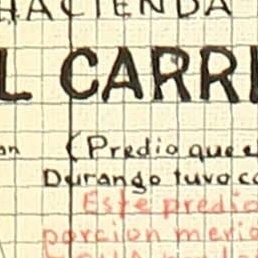 HACIENDA
L CARR
on (Predio que e
Durango tuvo co
Este predio
porcion meri